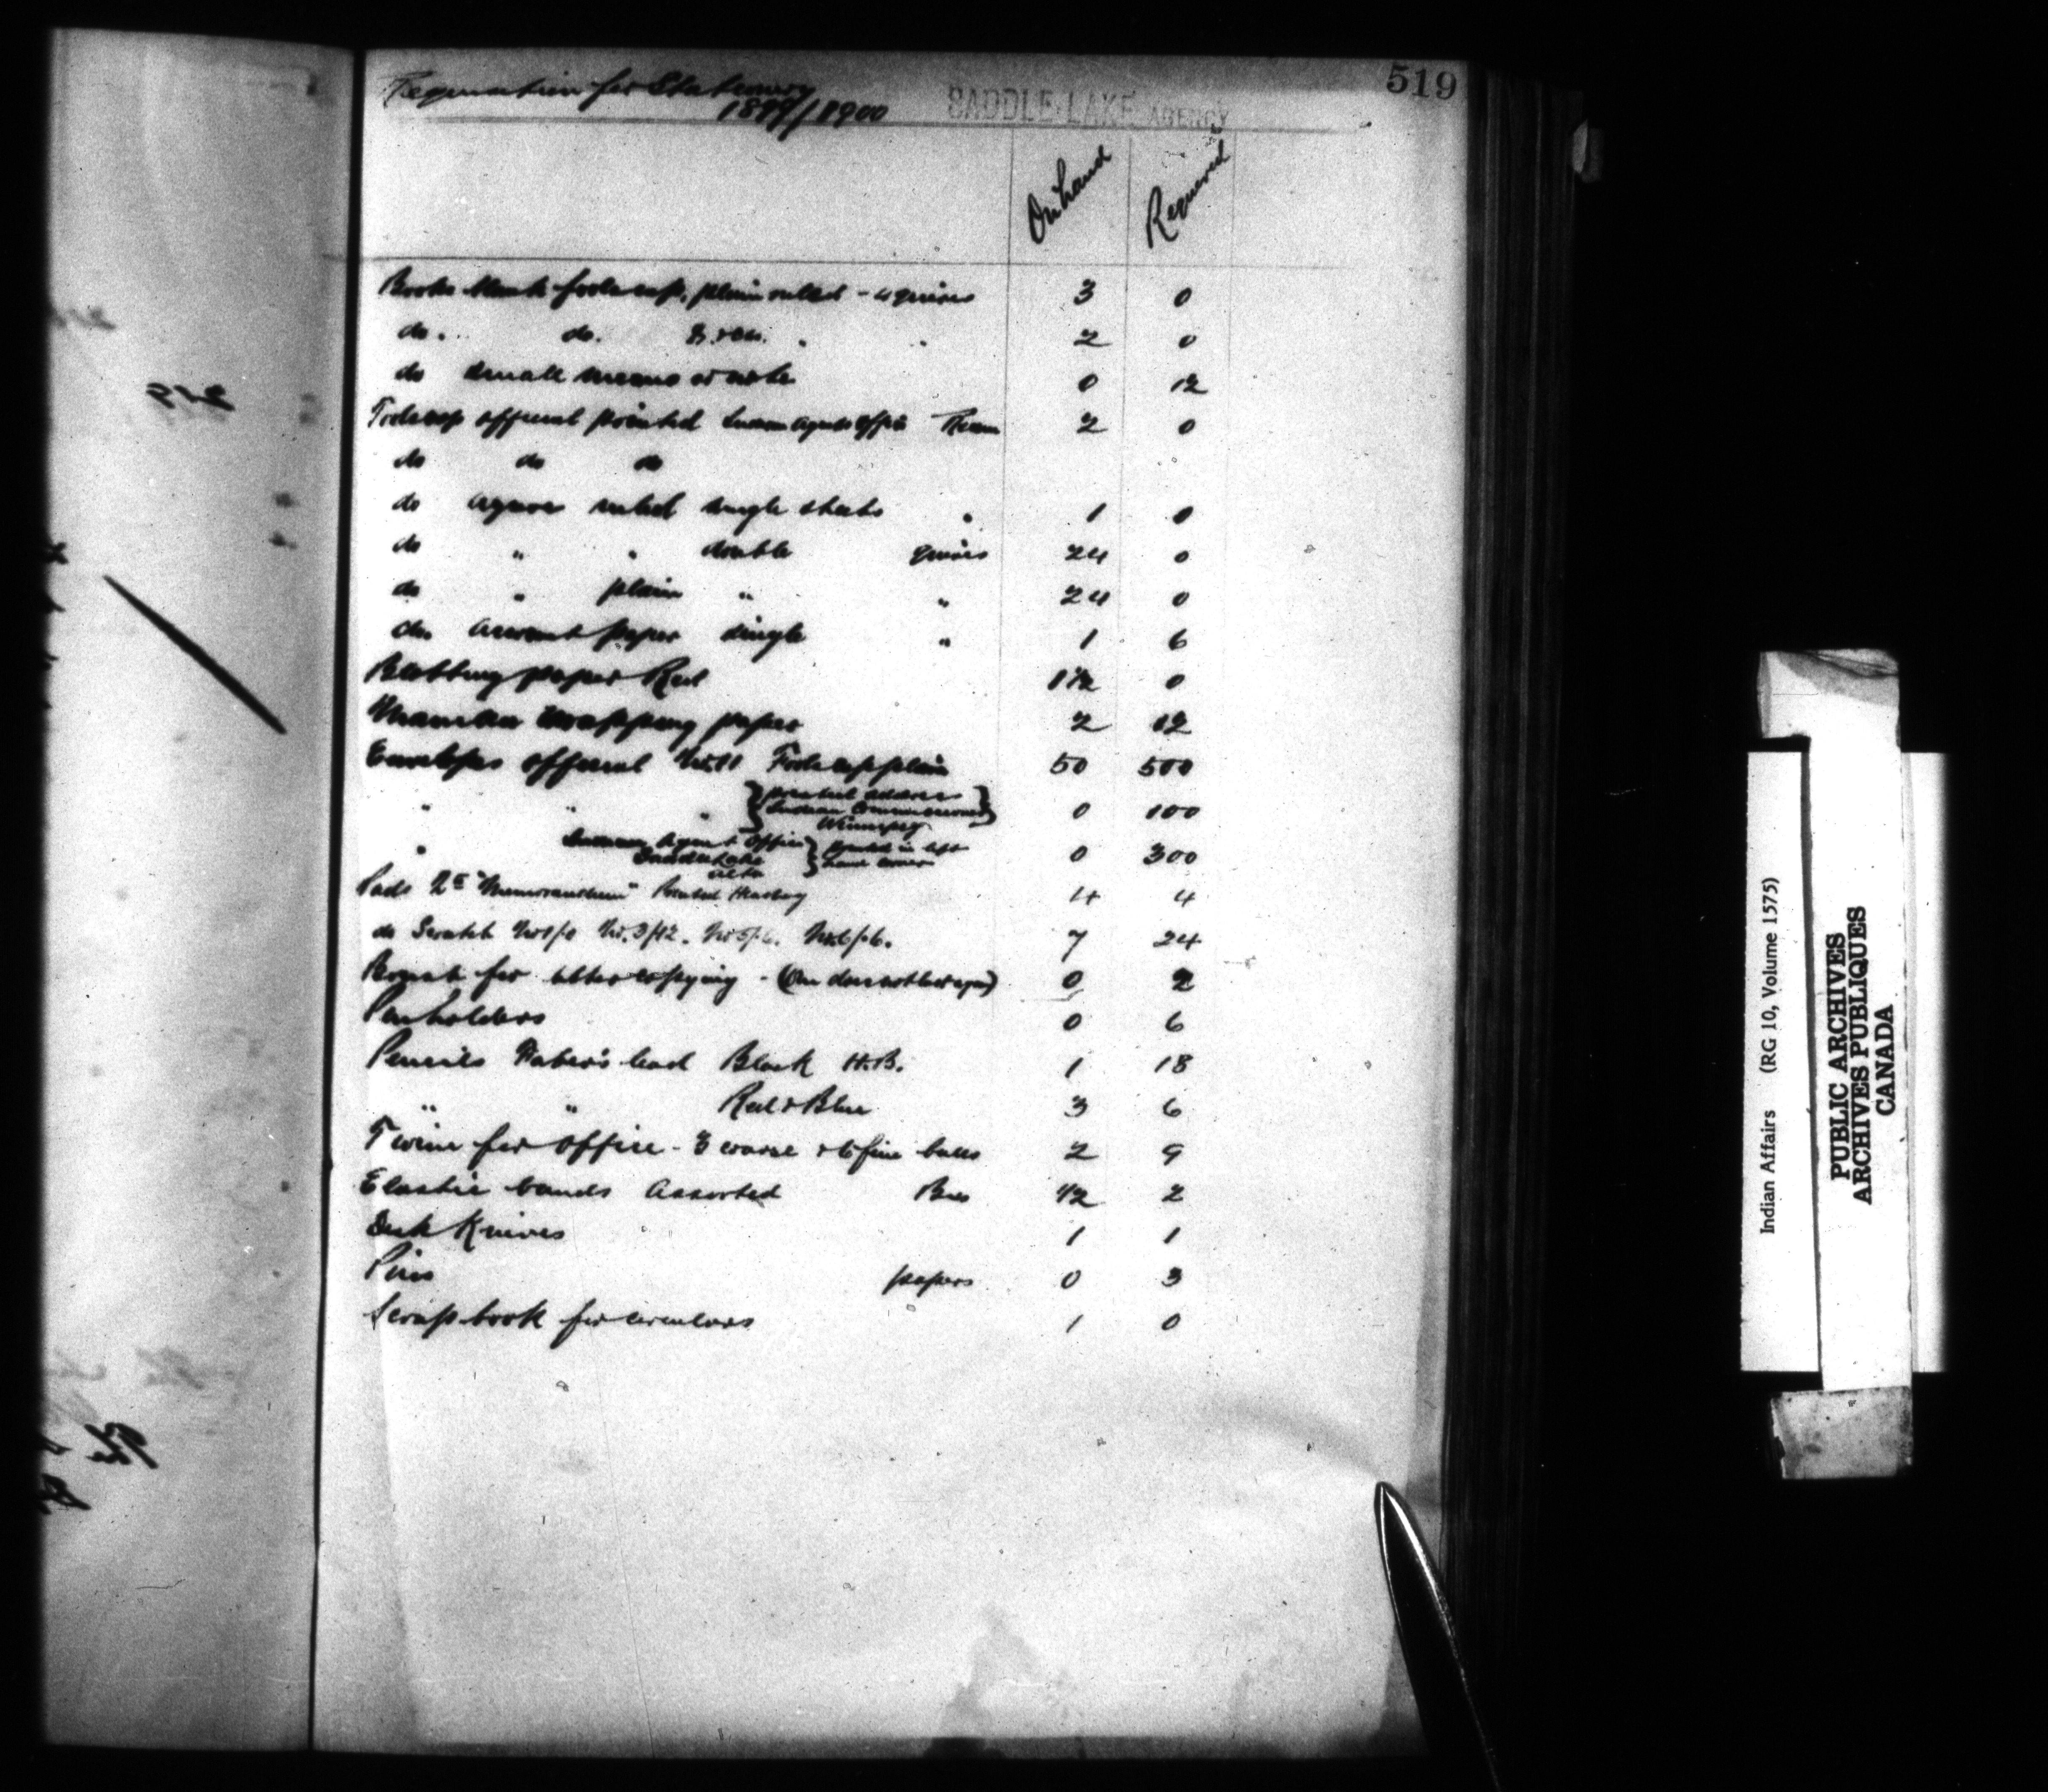 519
Requisition for Stationery
1899/1900
SADDLE LAKE AGENCY
On hand Required
Books blank foolscap, plain ruled - 4 quires 3 0
do. do. 2 0
do small memo or note 0 12
Foolscap official printed Indian Agents Office Ream 2 0
do do do
do ruled single sheets " 1 0
do " " double quires 24 0
do " plain " " 24 0
do. account paper single " 1 6
Blotting paper Red 1 1/2 0
Manilla wrapping paper 2 12
Envelopes official No. 11 Foolscap plain 50 500
" " " { printed address
Indian Commissioner } 0 100
Winnipeg
" Indian Agent Office } printed in left 0 300
Saddle Lake hand corner
Alta
Pads "Memorandum" Printed Heading 4 4
do Scratch No. 3/12. 7 24
for letter copying - 0 2
Penholders 0 6
Pencils Faber's lead Black H.B. 1 18
" " Red & Blue 3 6
Twine for office - 3 coarse & 6 fine balls 2 9
Elastic bands Assorted Box 1/2 2
Desk Knives 1 1
Pins papers 0 3
Scrap book for circulars 1 0
Indian Affairs (RG 10, Volume 1575)
PUBLIC ARCHIVES
ARCHIVES PUBLIQUES
CANADA